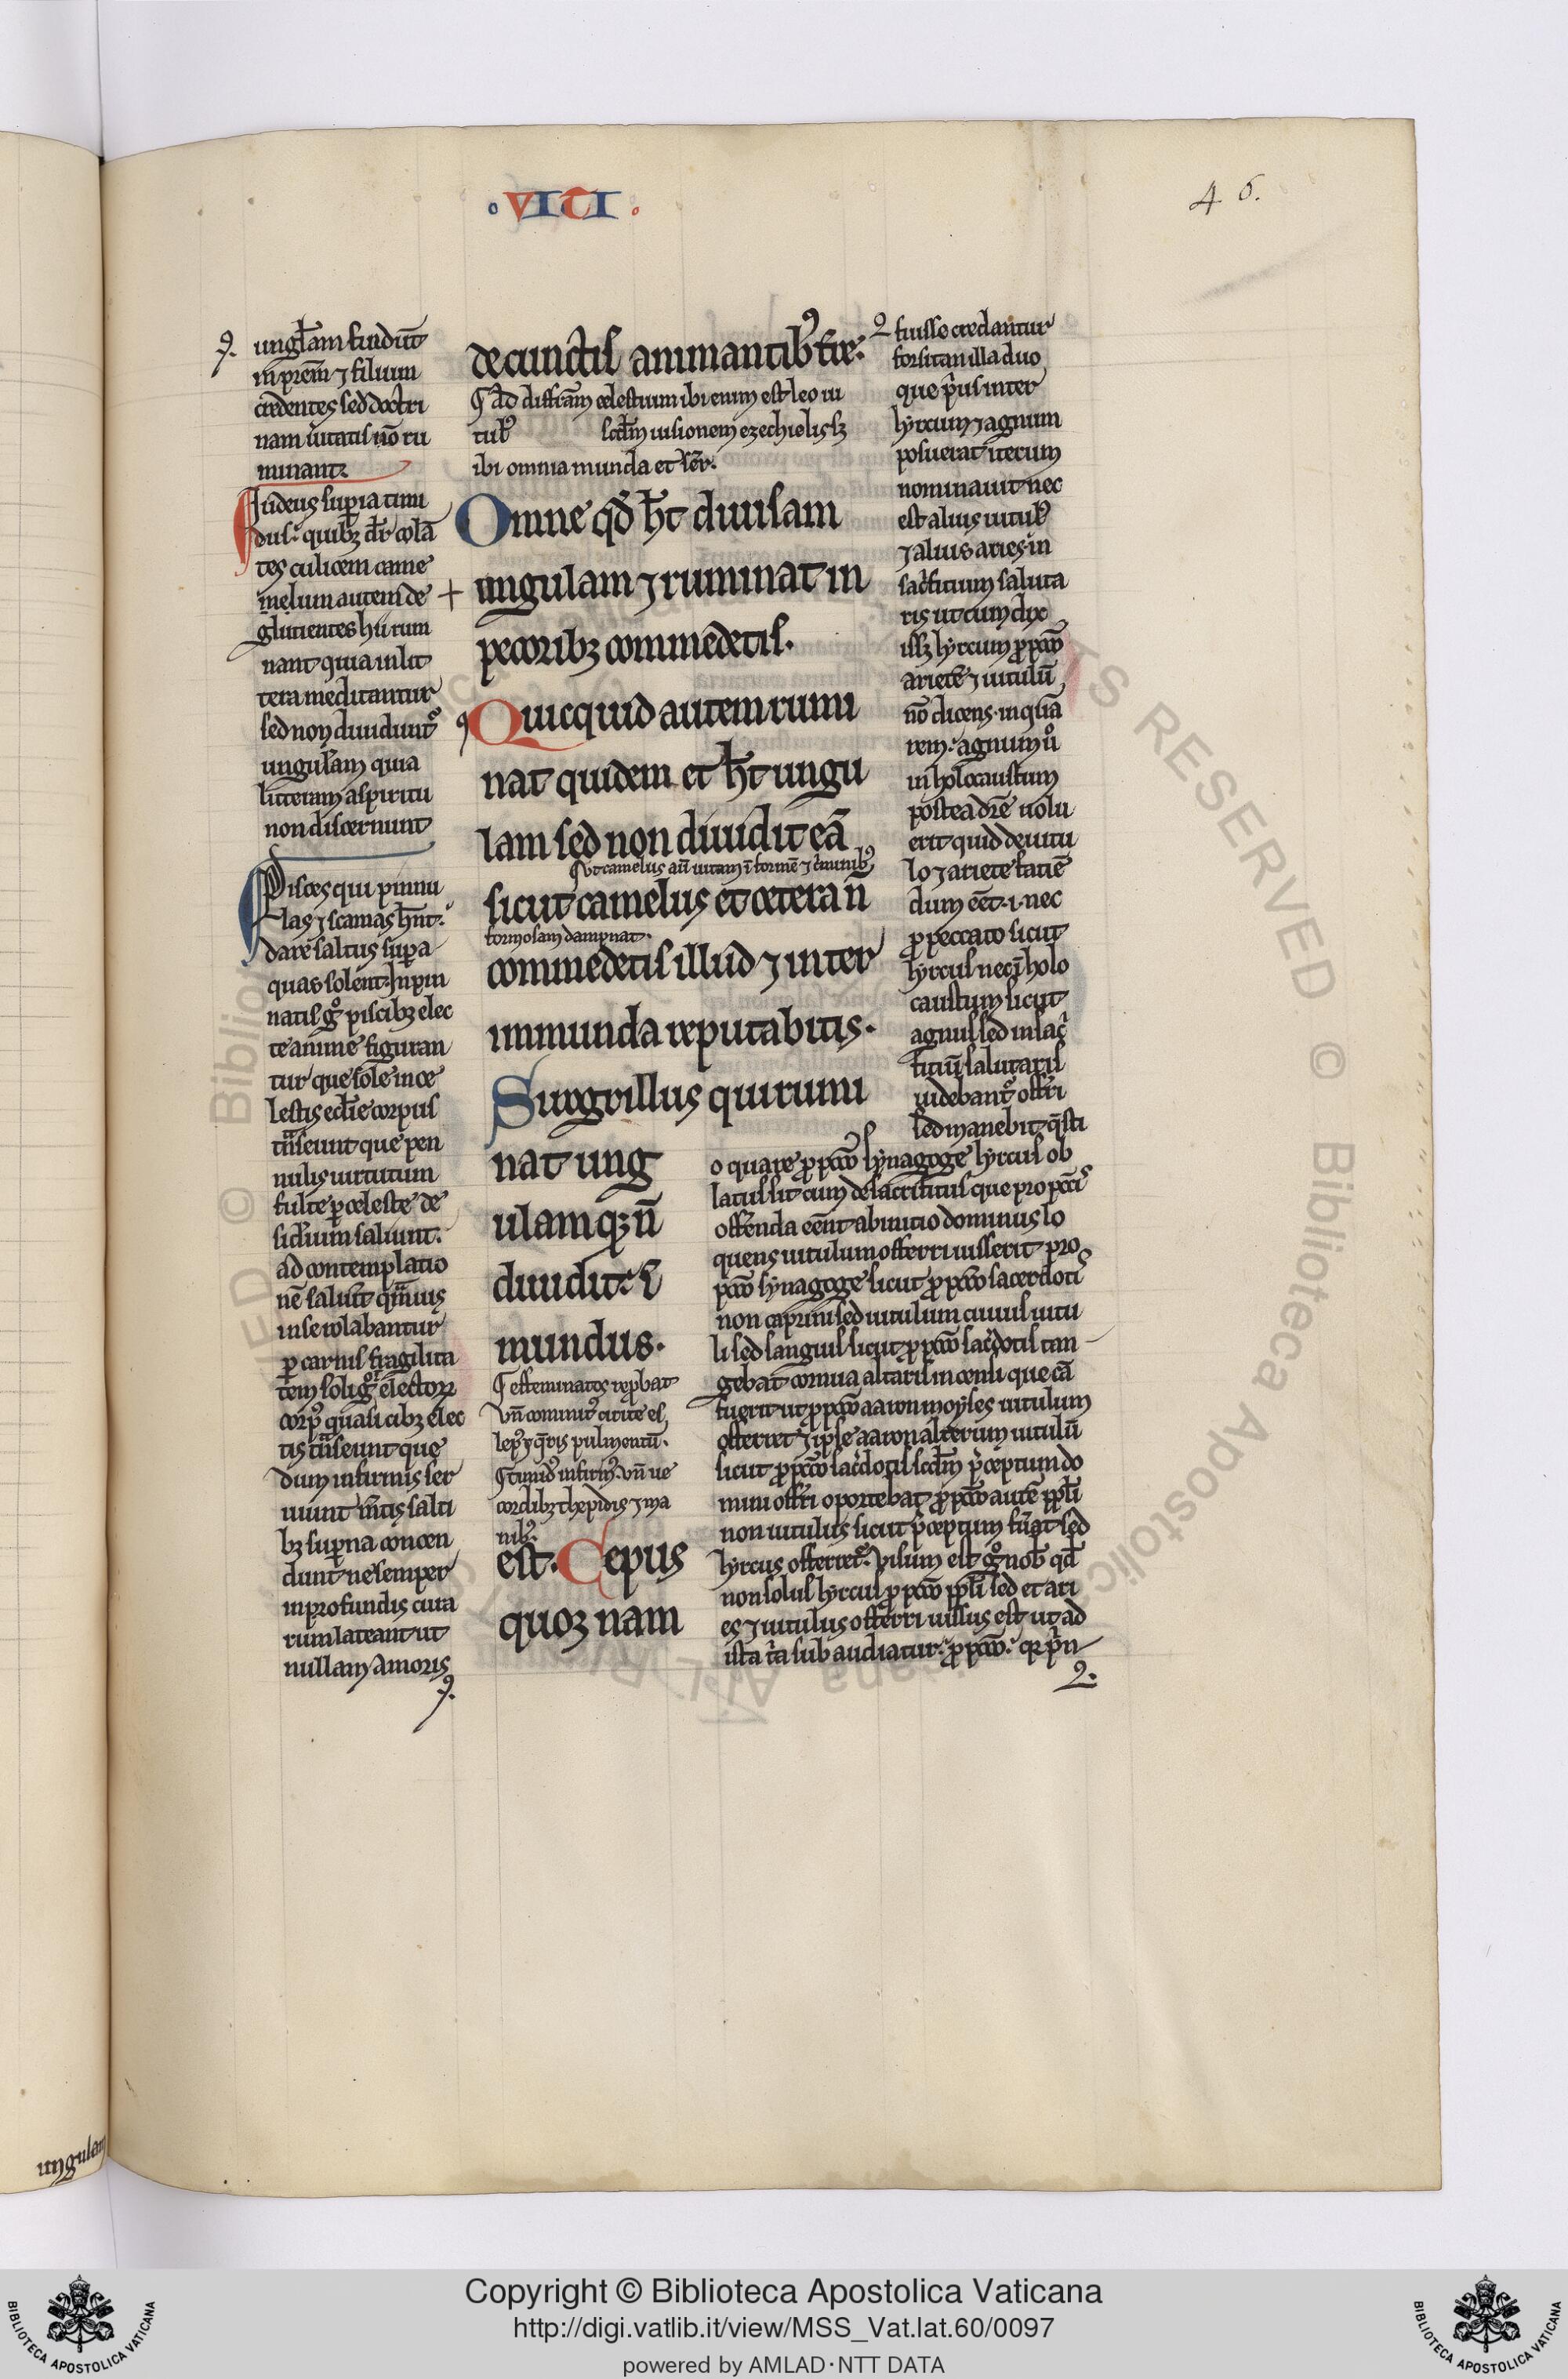 ·VITI·
46.
ungl̄am findūt
in p̄rem̄ ⁊ filium
credentes sed doctri
nam ūitatis nō ru
minantꝛ
Iudeus supra timi
dus: quibꝫ dr̄ colā
tes culicem came
melum autem de
glutientes hii rum
nant quia in lit
tera meditantur
sed non diuidunt
ungul̄am quia
litteram a spiritu
non discernunt
Pisces qui pinnu
las ⁊ scamas hn̄t
dare saltus supra
quas solent. In pin
natis gͦ piscibꝫ elec
te anime figuran
tur que sole in ce
lestis ecl̄ie corpus
tn̄seunt que pen
nulis uirtutum
fulte ꝑ celeste de
siderium saliunt
ad contemplatio
nē saliūt qm̄uis
in se colabantur
ꝑ carnis fragilita
tem soli gͦ electoꝝ
corpꝰ quasi cibꝫ elec
tis tn̄seunt que
dum infirmis ser
uiunt m̄tis salti
bꝫ supna concen
dunt ne semper
in profundis cura
rum lateant ut
nullam amoris
de cunctis animantibꝰ tr̄e:
Ad diffr̄am celestium ibi enim est leo ui
tulꝰ scd̄m uisionem ezechielis sꝫ
ibi omnia munda et
Omne qd̄ h̄t diuisam
ungulam ⁊ ruminat in
pecoribꝫ commedetis.
Quicquid autem rumi
nat quidem et h̄t ungu
lam sed non diuidit eā
sicut camelus et cetera n̄
formosam dampnat.
commedetis illud ⁊ inter
immunda reputabitis.
Surogrillus qui rumi
nat ung
ulamqꝫ n̄
diuidit: ī
mundus.
effeminatos reprobat
lepꝰ ⁊ pulmentū.
cordibꝫ
est. Cepus
quoꝫ nam
fuisse credantur
forsitan illa duo
que prius inter
hyrcum ⁊ agnum
posuerat iterum
nominauit nec
est alius uitulꝰ
⁊ alius aries in
sacrificium saluta
ris ut cum dix
issꝫ hyrcum ꝓ pccō
arietē ⁊ uitulū
nō dicens in quā
rem: agnum uͦ
in holocaustum
postea dr̄e uolu
erit quid de uitu
lo ⁊ ariete fatiē
dum eēt. i. nec
ꝓ peccato sicut
hyrcus nec ī holo
caustum sicut
agnus sed in sac
ficiū salutaris
uidebant offr̄i
sed manebit qsti
o quare ꝓ pccō synagoge hyrcus ob
latus sit cum de sacrificiis que pro pccis
offerenda eēnt ab initio dominus lo
quens uitulum offerri iusserit pro
pccō synagoge sicut ꝓ pccō sacerdotis
non caprini sed uitulum cuius uitu
li sed sanguis sicut ꝓ pccō sacdotis tan
gebat cornua altaris incensi que cā
fuerit ut ꝓ pccō aaron moyses uitulum
offerret ⁊ ipse aaron alterum uitulū
sicut ꝓ pccō sacdotis scd̄m pceptum do
mini offr̄i oportebat ꝓ pccō autē ppl̄i
non uitulus sicut pceptum fuat sed
hyrcus offerret. Visum est gͦ nob̄ qd̄
non solus hyrcus ꝓ pccō ppl̄i sed et ari
es ⁊ uitulus offerri iussus est ut ad
ista tria sub audiatur: ꝓ pccō:
ungulam
Copyright © Biblioteca Apostolica Vaticana
http://digi.vatlib.it/view/MSS_Vat.lat.60/0097
powered by AMLAD·NTT DATA
BIBLIOTECA APOSTOLICA VATICANA
BIBLIOTECA APOSTOLICA VATICANA